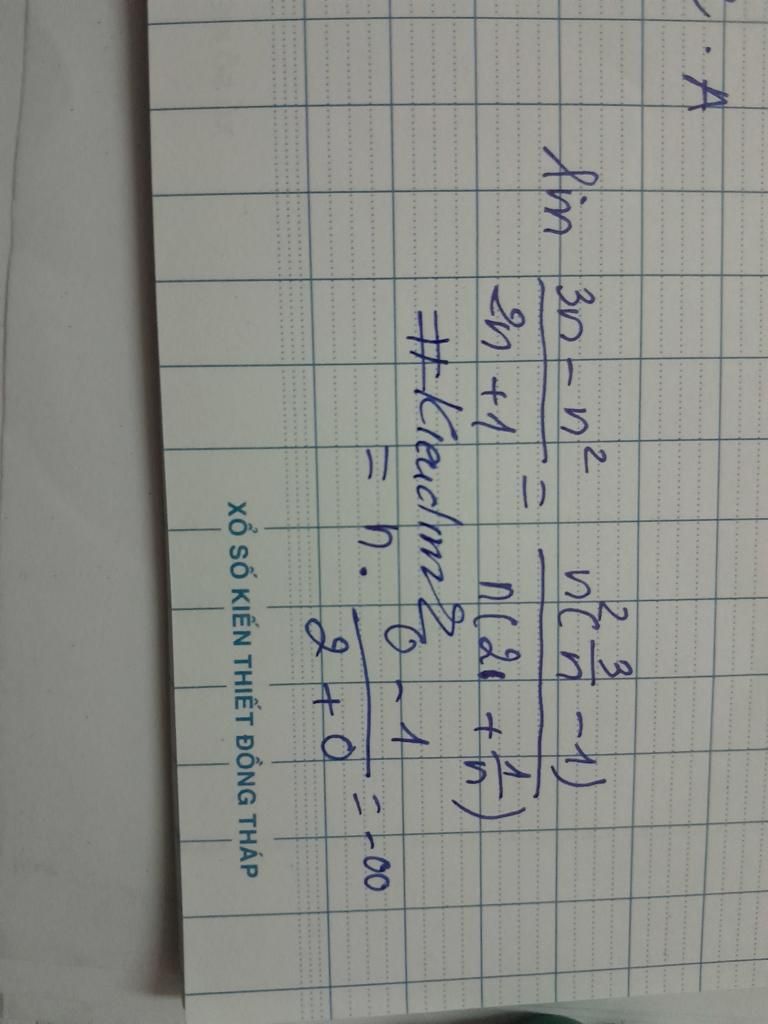 . A
lim (3n - n²)/(2n + 1) = n²(3/n - 1)/n(2 + 1/n)
= n . (0 - 1)/(2 + 0) = -∞
XỔ SỐ KIẾN THIẾT ĐỒNG THÁP